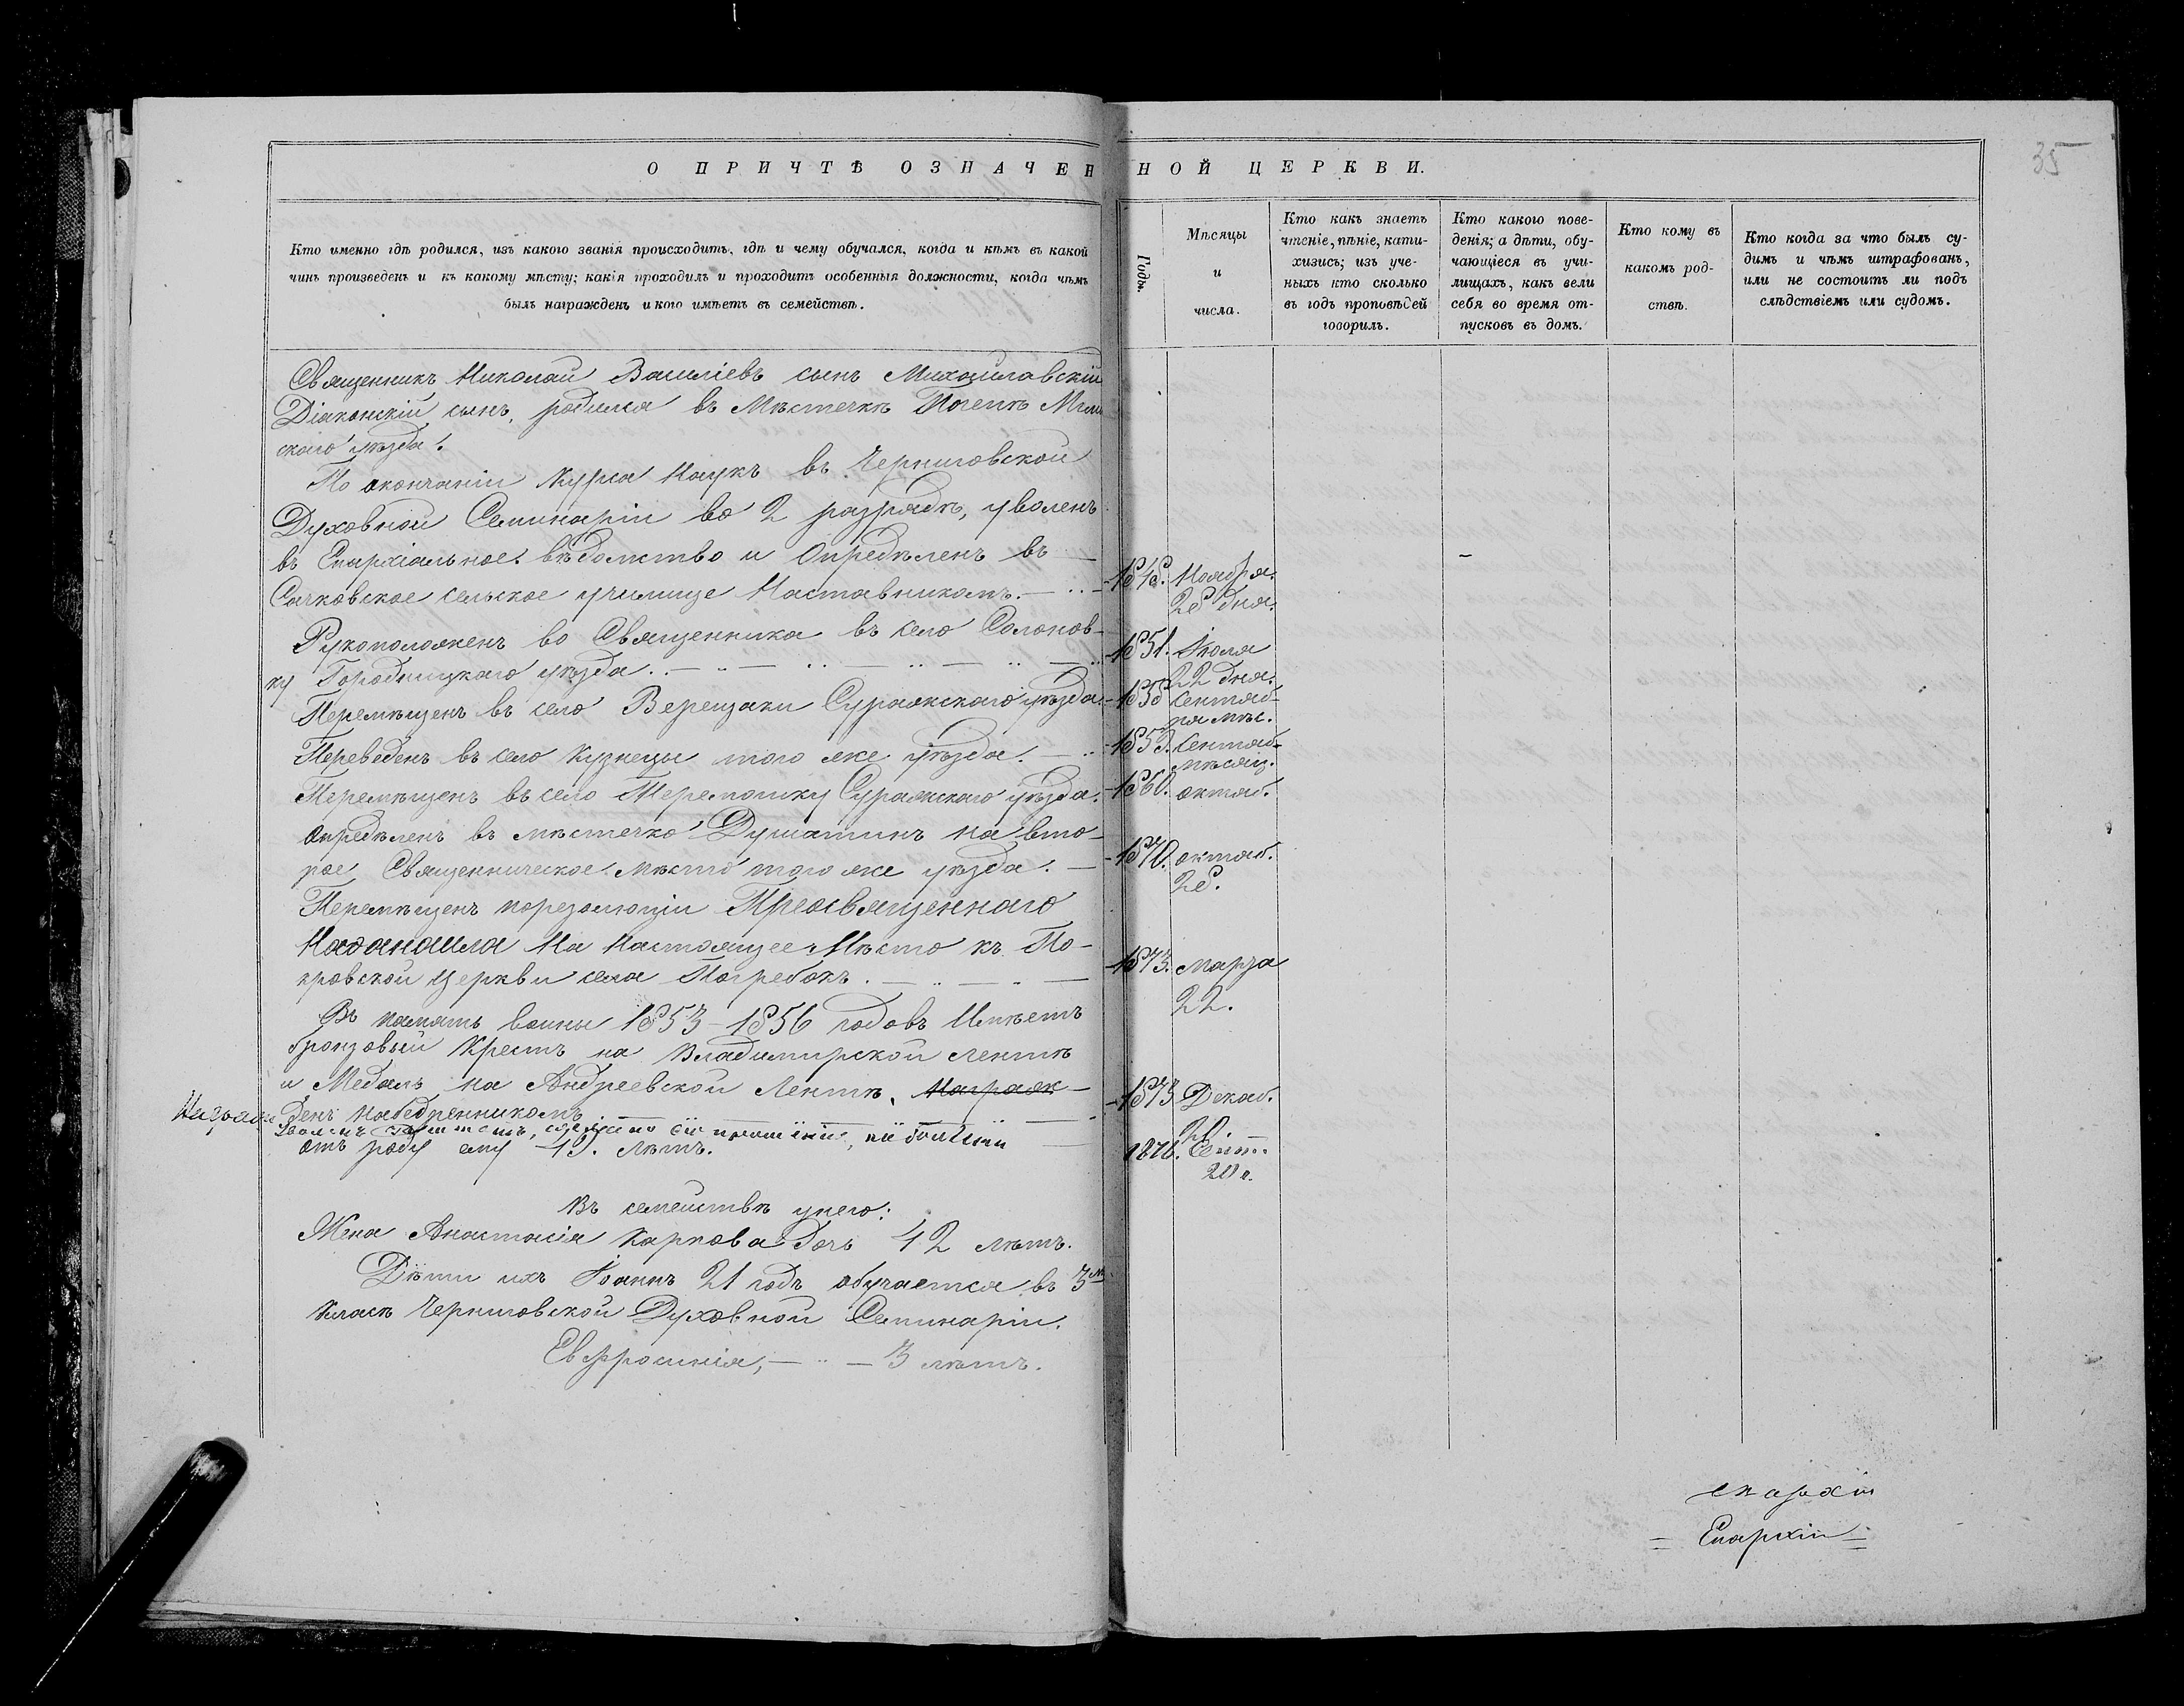 35
О ПРИЧТѢ ОЗНАЧЕННОЙ ЦЕРКВИ.
Кто именно гдѣ родился, изъ какого званія происходитъ, гдѣ и чему обучался, когда и кѣмъ въ какой
чинъ произведенъ и къ какому мѣсту; какія проходилъ и проходитъ особенныя должности, когда чѣмъ
былъ награжденъ и кого имѣетъ въ семействѣ.
Годы.
Мѣсяцы
и
числа.
Кто какъ знаетъ
чтеніе, пѣніе, кати-
хизисъ; изъ уче-
ныхъ кто сколько
въ годъ проповѣдей
говорилъ.
Кто какого пове-
денія; а дѣти, обу-
чающіеся въ учи-
лищахъ, какъ вели
себя во время от-
пусковъ въ домъ.
Кто кому въ
какомъ род-
ствѣ.
Кто когда за что былъ су-
димъ и чѣмъ штрафованъ,
или не состоитъ ли подъ
слѣдствіемъ или судомъ.
Священникъ Николай Василіевъ сынъ
Діаконскій сынъ, родился въ Мѣстечкѣ Почепѣ
скаго уѣзда.
По окончаніи Курса Наукъ въ Черниговской
Духовной Семинаріи во 2 разрядѣ, уволенъ
въ Епархіальное вѣдомство и Опредѣленъ въ
Сачковское сельское училище Наставникомъ. Ноября
28 дня.
Рукоположенъ во Священника въ село Солонов- 1851. Іюля
ку Городницкаго уѣзда. 22 дня.
Перемѣщенъ въ село Верещаки Суражскаго уѣзда. Сентяб-
ря мѣс.
Переведенъ въ село Кузнецы того же уѣзда. Сентяб-
мѣсяц.
Перемѣщенъ въ село Суражскаго уѣзда. 1860. октяб.
Опредѣленъ въ мѣстечко Душатинъ на вто-
рое Священническое Мѣсто того же уѣзда. 1870. октяб.
28.
Перемѣщенъ по резолюціи Преосвященнаго
Наѳанаила На Настоящее Мѣсто къ По-
кровской Церкви села Погребокъ. 1873. Марта
22.
Въ память войны 1853-1856 годовъ Имѣетъ
бронзовый Крестъ на Владимирской лентѣ
и Медаль на Андреевской Лентѣ, Награж- 1873 Декаб.
Награж денъ набедренникомъ.
1876. Сент.
20 д.
отъ роду ему лѣтъ.
Въ семействѣ у него:
Жена Анастасія Карпова дочь 42 лѣтъ.
Дѣти ихъ Іоаннъ 21 годъ обучается въ 3м
Класѣ Черниговской Духовной Семинаріи.
Евфросинія, 3 лѣтъ.
епархіи
Епархіи